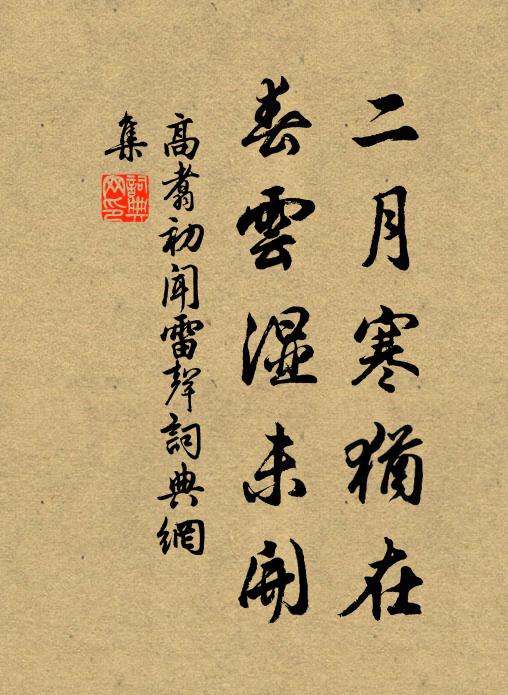 二月寒猶在
春雲濕未開
高翥初聞雷聲詞典網
集
詞典